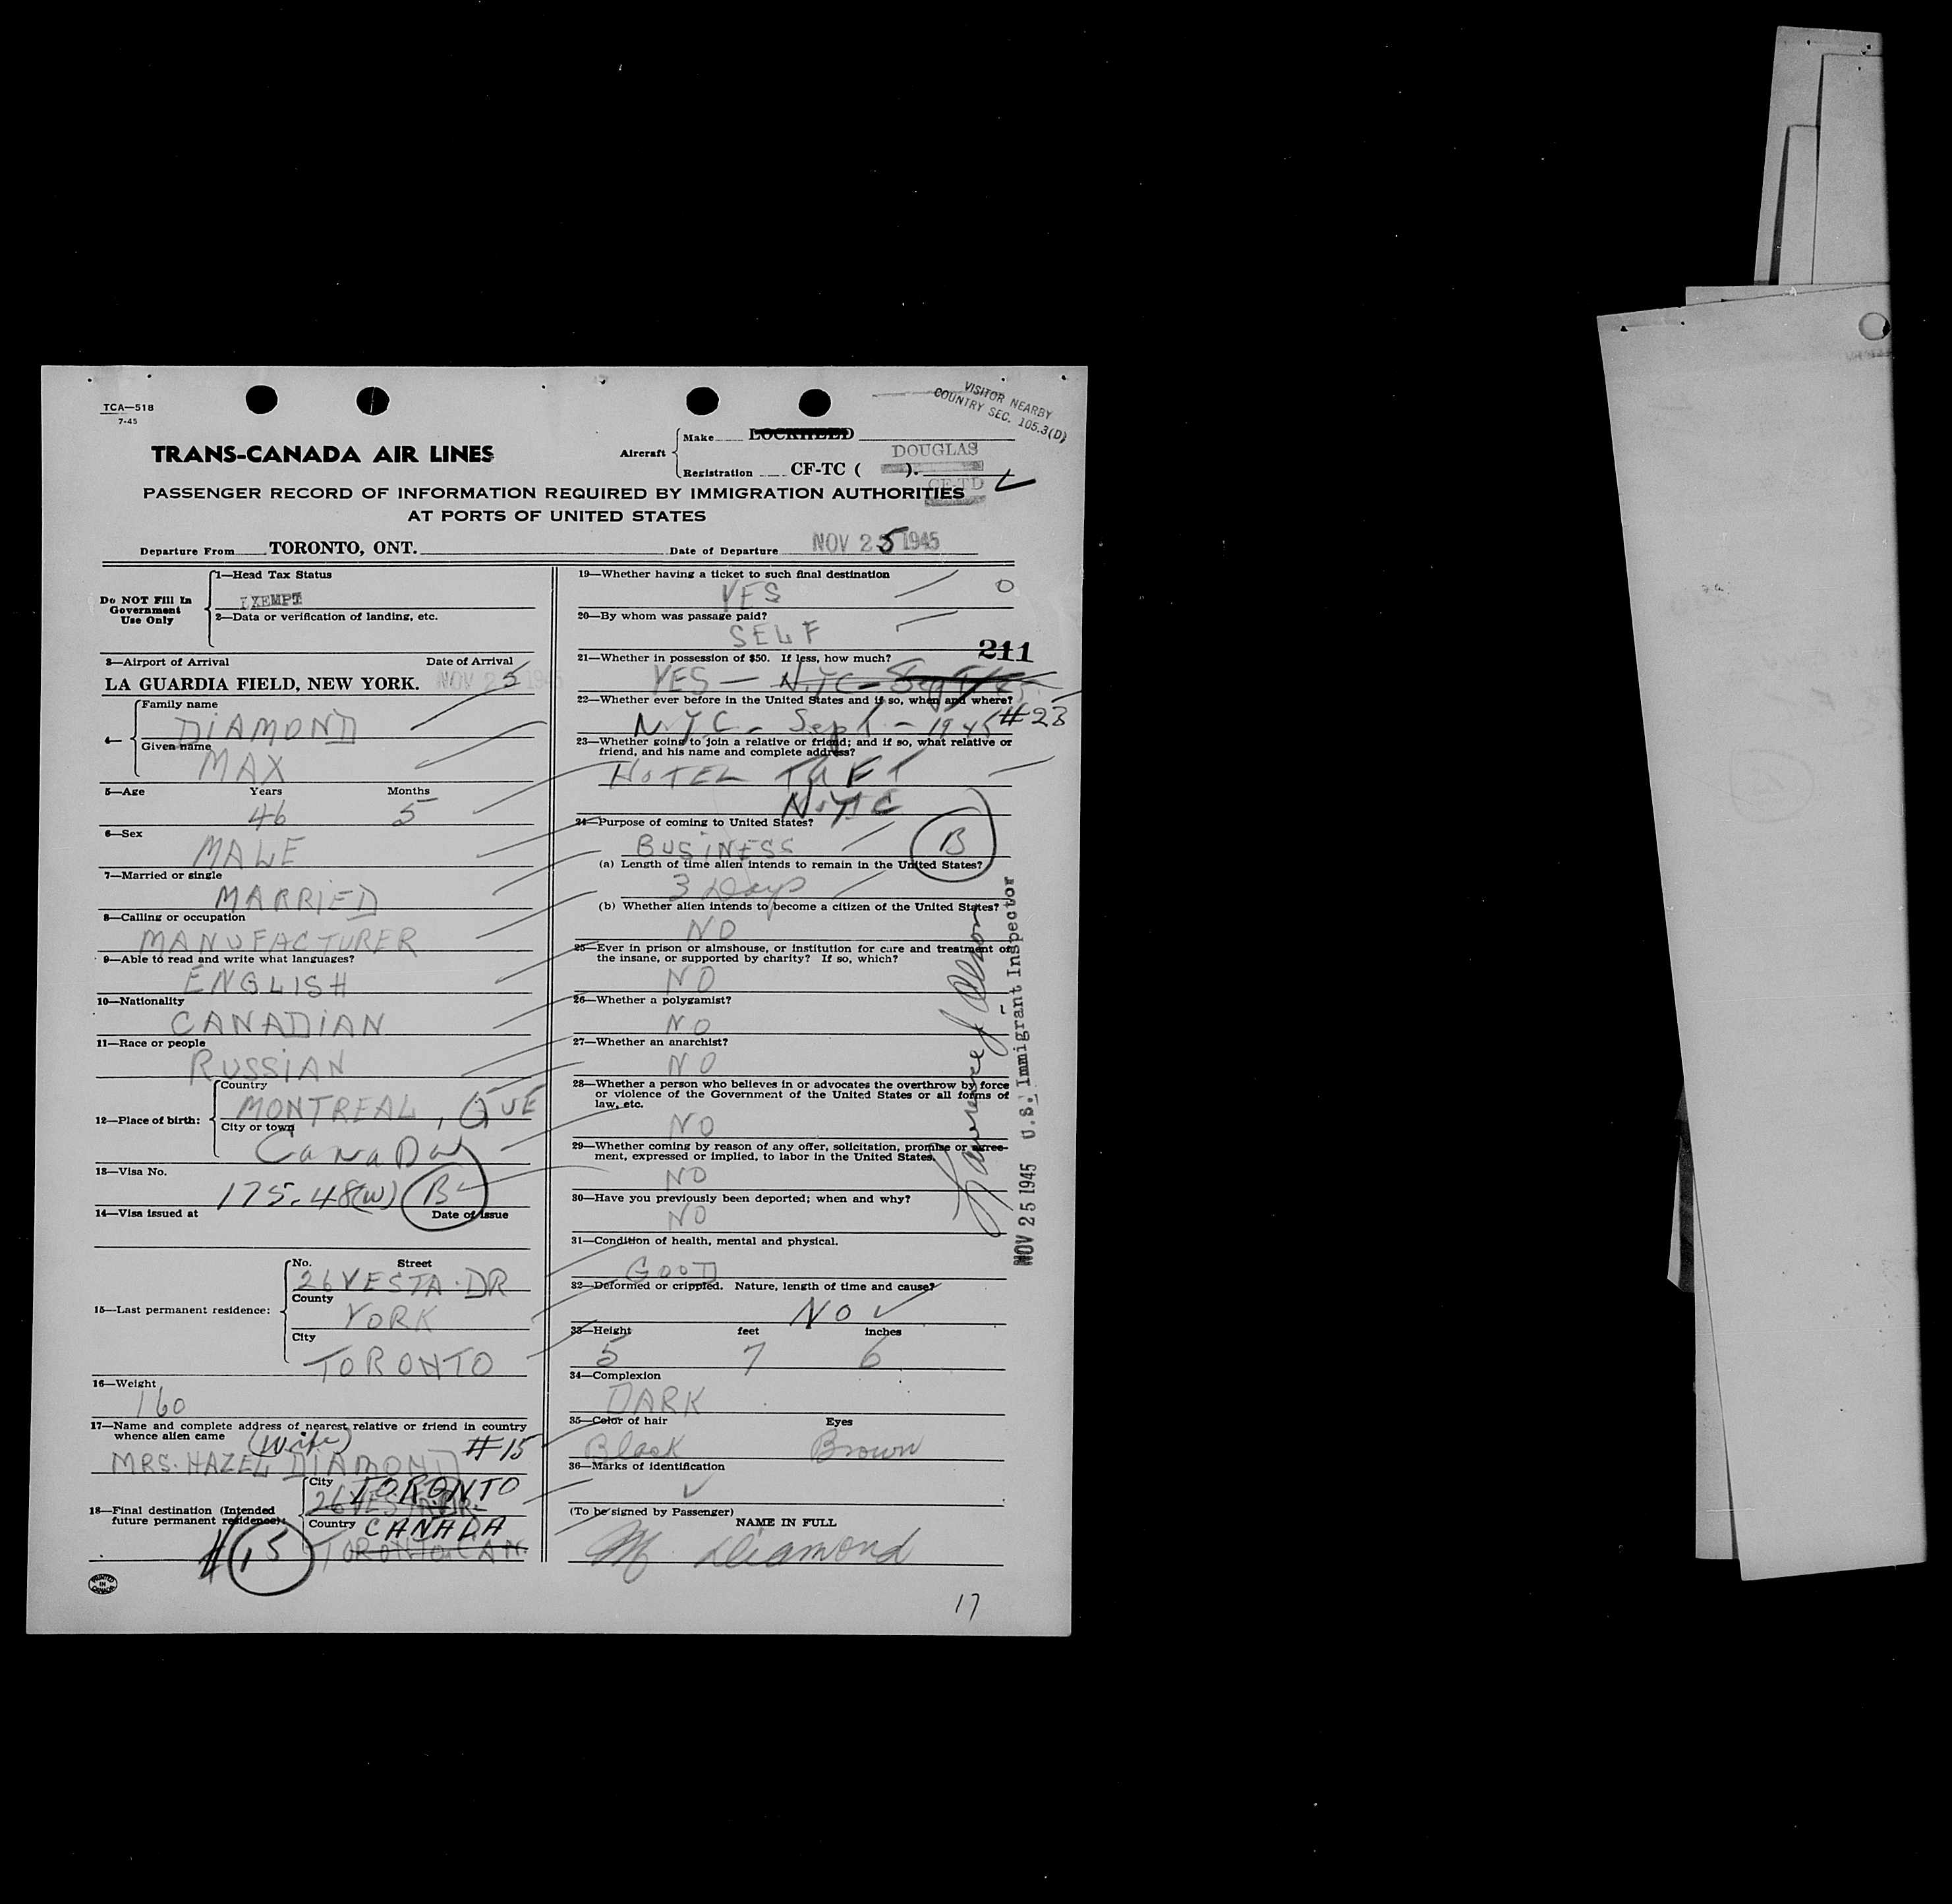 TCA—518
7-45
VISITOR NEARBY
COUNTRY SEC. 105.3(D)
TRANS-CANADA AIR LINES
Aircraft
Make LOCKHEED
DOUGLAS
Registration CF-TC ( ).
CF-TD
PASSENGER RECORD OF INFORMATION REQUIRED BY IMMIGRATION AUTHORITIES
AT PORTS OF UNITED STATES
Departure From TORONTO, ONT. Date of Departure NOV 25 1945
Do NOT Fill In
Government
Use Only
1—Head Tax Status
EXEMPT
2—Data or verification of landing, etc.
3—Airport of Arrival Date of Arrival
LA GUARDIA FIELD, NEW YORK. NOV 25 1945
4—
Family name
DIAMOND
Given name
MAX
5—Age Years Months
46 5
6—Sex
MALE
7—Married or single
MARRIED
8—Calling or occupation
MANUFACTURER
9—Able to read and write what languages?
ENGLISH
10—Nationality
CANADIAN
11—Race or people
RUSSIAN
12—Place of birth:
Country
MONTREAL, QUE
City or town
CANADA
13—Visa No.
175.48(w) B
14—Visa issued at Date of issue
15—Last permanent residence:
No. Street
26 VESTA. DR
County
YORK
City
TORONTO
16—Weight
160
17—Name and complete address of nearest relative or friend in country
whence alien came (Wife) #15
MRS. HAZEL DIAMOND
18—Final destination (Intended
future permanent residence):
City
TORONTO
26 VESTA DR.
Country CANADA
TORONTO. CAN.
#15
PRINTED
IN
CANADA
19—Whether having a ticket to such final destination
YES 0
20—By whom was passage paid?
SELF
211
21—Whether in possession of $50. If less, how much?
YES — N.Y.C — Sept/45
22—Whether ever before in the United States and if so, when and where?
N.Y.C. - Sept - 1945 #23
23—Whether going to join a relative or friend; and if so, what relative or
friend, and his name and complete address?
HOTEL TAFT
N.Y.C
24—Purpose of coming to United States?
BUSINESS B
(a) Length of time alien intends to remain in the United States?
3 Days
(b) Whether alien intends to become a citizen of the United States?
NO
25—Ever in prison or almshouse, or institution for care and treatment of
the insane, or supported by charity? If so, which?
NO
26—Whether a polygamist?
NO
27—Whether an anarchist?
NO
28—Whether a person who believes in or advocates the overthrow by force
or violence of the Government of the United States or all forms of
law, etc.
NO
29—Whether coming by reason of any offer, solicitation, promise or agree-
ment, expressed or implied, to labor in the United States.
NO
30—Have you previously been deported; when and why?
NO
31—Condition of health, mental and physical.
GOOD
32—Deformed or crippled. Nature, length of time and cause?
NO
33—Height feet inches
5 7 6
34—Complexion
DARK
35—Color of hair Eyes
Black Brown
36—Marks of identification
(To be signed by Passenger)
NAME IN FULL
M. Diamond
17
NOV 25 1945 U.S. Immigrant Inspector